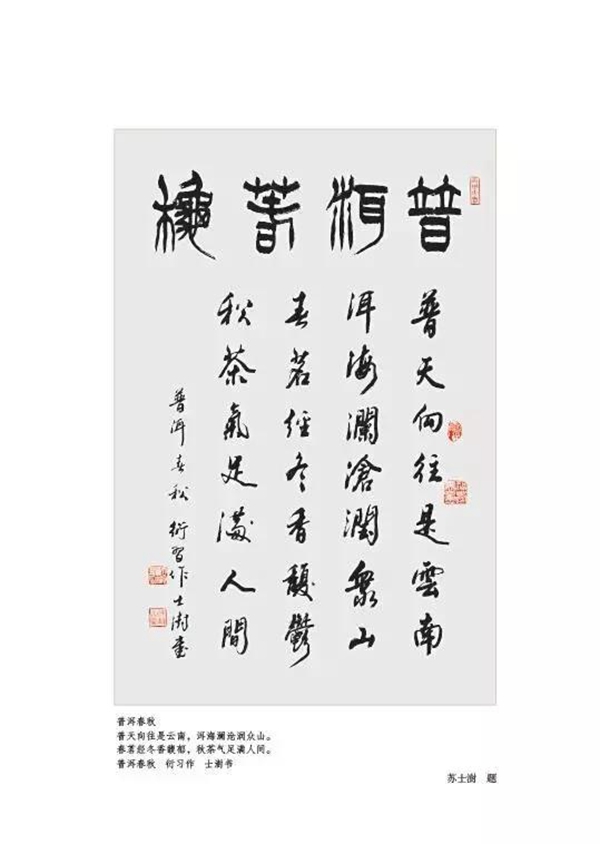 普洱春秋
普天向往是雲南
洱海瀾滄潤眾山
春茗經冬香馥鬱
秋茶氣足滿人間
普洱春秋 衍習作 士澍書
普洱春秋
普天向往是云南，洱海澜沧润众山。
春茗经冬香馥郁，秋茶气足满人间。
普洱春秋 衍习作 士澍书
苏士澍 题